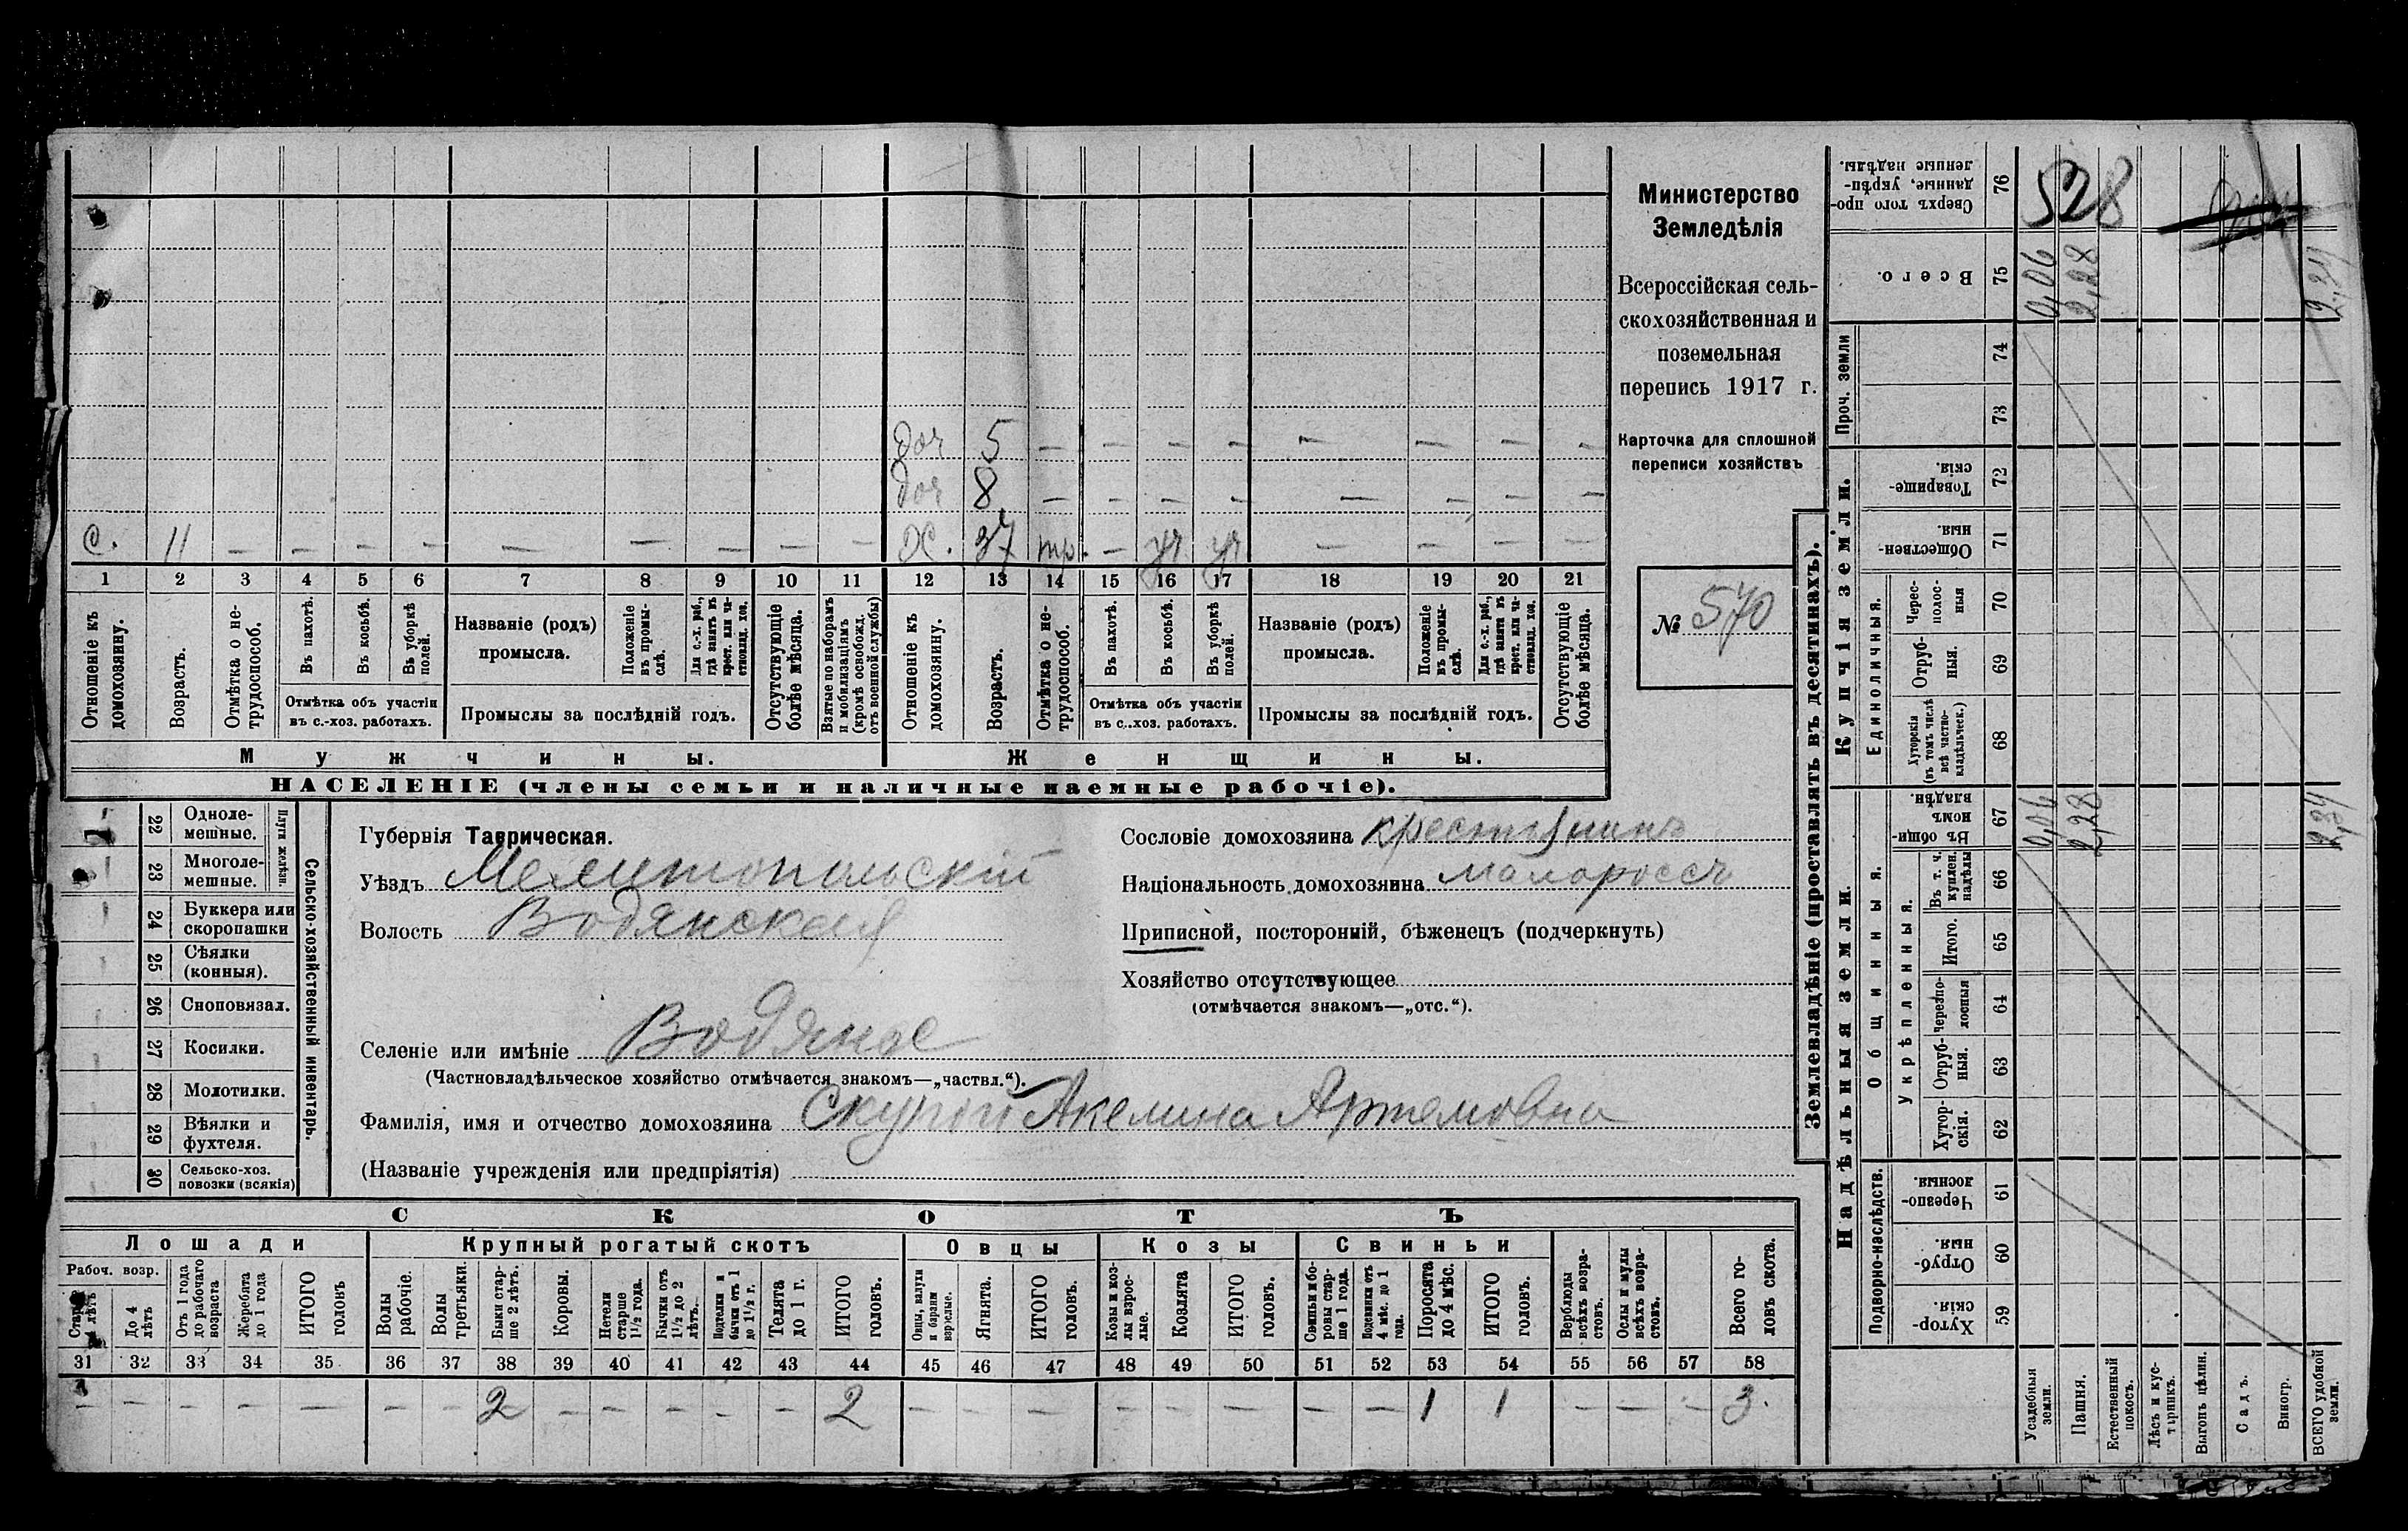 Министерство
Земледѣлія
Всероссійская сель-
скохозяйственная и
поземельная
перепись 1917 г.
Карточка для сплошной
переписи хозяйствъ
№ 570
доч 5 — — — — — — — —
доч 8 — — — — — — — —
с. 11 — — — — — — — — — х. 37 тр. — уч уч — — — —
1 2 3 4 5 6 7 8 9 10 11 12 13 14 15 16 17 18 19 20 21
Отношеніе къ домохозяину.
Возрастъ.
Отмѣтка о не-трудоспособ.
Въ пахотѣ.
Въ косьбѣ.
Въ уборкѣ полей.
Отмѣтка объ участіи
въ с.-хоз. работахъ.
Названіе (родъ)
промысла.
Положеніе въ промы-слѣ.
Для с.-х. раб., гдѣ занятъ въ крест. или ча-стновлад. хоз.
Промыслы за послѣдній годъ.
Отсутствующіе болѣе мѣсяца.
Взятые по наборамъ и мобилизаціямъ (кромѣ освобожд. отъ военной службы)
Отношеніе къ домохозяину.
Возрастъ.
Отмѣтка о не-трудоспособ.
Въ пахотѣ.
Въ косьбѣ.
Въ уборкѣ полей.
Отмѣтка объ участіи
въ с..хоз. работахъ.
Названіе (родъ)
промысла.
Положеніе въ промы-слѣ.
Для с.-х. раб., гдѣ занята въ крест. или ча-стновлад. хоз.
Промыслы за послѣдній годъ.
Отсутствующіе болѣе мѣсяца.
Мужчины. Женщины.
НАСЕЛЕНІЕ (члены семьи и наличные наемные рабочіе).
22 Одноле-
мешные.
23 Многоле-
мешные.
Плуги желѣзн.
24 Буккера или
скоропашки
25 Сѣялки
(конныя).
26 Сноповязал.
27 Косилки.
28 Молотилки.
29 Вѣялки и
фухтеля.
30 Сельско-хоз.
повозки (всякія)
Сельско-хозяйственный инвентарь.
Губернія Таврическая.
Уѣздъ Мелитопольскій
Волость Водянская
Селеніе или имѣніе Водяное
(Частновладѣльческое хозяйство отмѣчается знакомъ—„частвл.“).
Фамилія, имя и отчество домохозяина Скупой Акелина Артемовна
(Названіе учрежденія или предпріятія)
Сословіе домохозяина крестьянинъ
Національность домохозяина малороссъ
Приписной, посторонній, бѣженецъ (подчеркнуть)
Хозяйство отсутствующее
(отмѣчается знакомъ—„отс.“).
СКОТЪ
Лошади Крупный рогатый скотъ Овцы Козы Свиньи
Рабоч. возр.
Старше 4 лѣтъ
До 4 лѣтъ
Отъ 1 года до рабочаго возраста
Жеребята до 1 года
ИТОГО головъ
Волы рабочіе.
Волы третьяки.
Быки стар-ше 2 лѣтъ.
Коровы.
Нетели старше 1½ года.
Бычки отъ 1½ до 2 лѣтъ.
Подтелки и бычки отъ 1 до 1½ г.
Телята до 1 г.
ИТОГО головъ.
Овцы, валухи и бараны взрослые.
Ягнята.
ИТОГО головъ.
Козы и коз-лы взрос-лые.
Козлята
ИТОГО головъ.
Свиньи и бо-ровы стар-ше 1 года.
Подсвинки отъ 4 мѣс. до 1 года.
Поросята до 4 мѣс.
ИТОГО головъ.
Верблюды всѣхъ возра-стовъ.
Ослы и мулы всѣхъ возра-стовъ.
Всего го-ловъ скота.
31 32 33 34 35 36 37 38 39 40 41 42 43 44 45 46 47 48 49 50 51 52 53 54 55 56 57 58
— — — — — — — 2 — — — — — 2 — — — — — — — — 1 1 — — — 3.
Землевладѣніе (проставлять въ десятинахъ).
Надѣльныя земли.
Купчія земли.
Проч. земли
Подворно-наслѣдств.
Общинныя.
Укрѣпленныя.
Единоличныя.
Хутор-скія. 59
Отруб-ныя. 60
Черезпо-лосныя 61
Хутор-скія. 62
Отруб-ныя. 63
Черезпо-лосныя 64
Итого. 65
Въ т. ч. куплен. надѣлы 66
Въ общин-номъ владѣн. 67
Хуторскія (въ томъ числѣ всѣ частно-владѣльческ.) 68
Отруб-ныя. 69
Черес-полос-ныя 70
Обществен-ныя. 71
Товарище-скія. 72
73
74
Всего. 75
Сверхъ того про-данные, укрѣп-ленные надѣлы. 76
Усадебныя земли. 0,06 0,06
Пашня. 2,28 2,28
Естественный покосъ.
Лѣсъ и кус-тарникъ.
Выгонъ цѣлин.
Садъ.
Виногр.
ВСЕГО удобной земли. 2,34 2,34
528